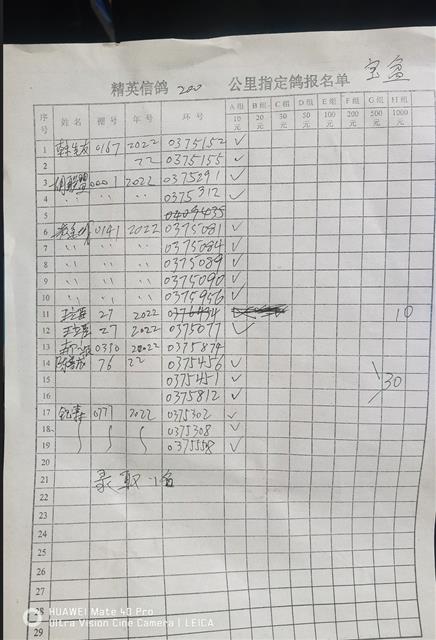 精英信鸽 200 公里指定鸽报名单 宝盆
序号 姓名 棚号 年号 环号 A组 10元 B组 20元 C组 30元 D组 50元 E组 100元 F组 200元 G组 500元 H组 1000元
1 0167 2022 0375152 ✓
2 22 0375155 ✓
3 0001 2022 0375291 ✓
4 〃 〃 〃 0375312 ✓
5 0409435
6 0141 2022 0375081 ✓
7 〃 〃 〃 0375084 ✓
8 〃 〃 〃 0375089 ✓
9 〃 〃 〃 0375090 ✓
10 〃 〃 〃 0375956 ✓
11 27 2022 10
12 27 2022 0375077 ✓
13 2022 0375874
14 76 22 0375456 ✓
15 0375451 ✓ 30
16 0375812 ✓
17 0777 2022 0375302 ✓
18 0375308 ✓
19 ✓
20
21 录取1名
22
23
24
25
26
27
28
29
HUAWEI Mate 40 Pro
Ultra Vision Cine Camera | LEICA